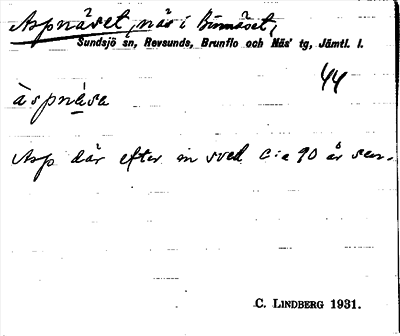 Aspnäset, näs i Binnäset,
Sundsjö sn, Revsunds, Brunflo och Näs' tg, Jämtl. l.
44
àspnä̀sa
Asp där efter en sved c:a 90 år sen.
C. LINDBERG 1931.